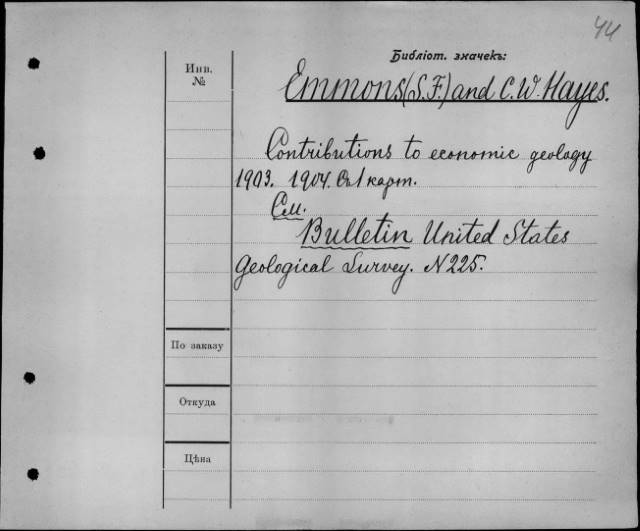 44
Библіот. значекъ:
Инв.
№
Emmons (S.F.) and C.W. Hayes.
Contributions to economic geology
1903. 1904. Съ 1 карт.
См.
Bulletin United States
Geological Survey. N 225.
По заказу
Откуда
Цѣна